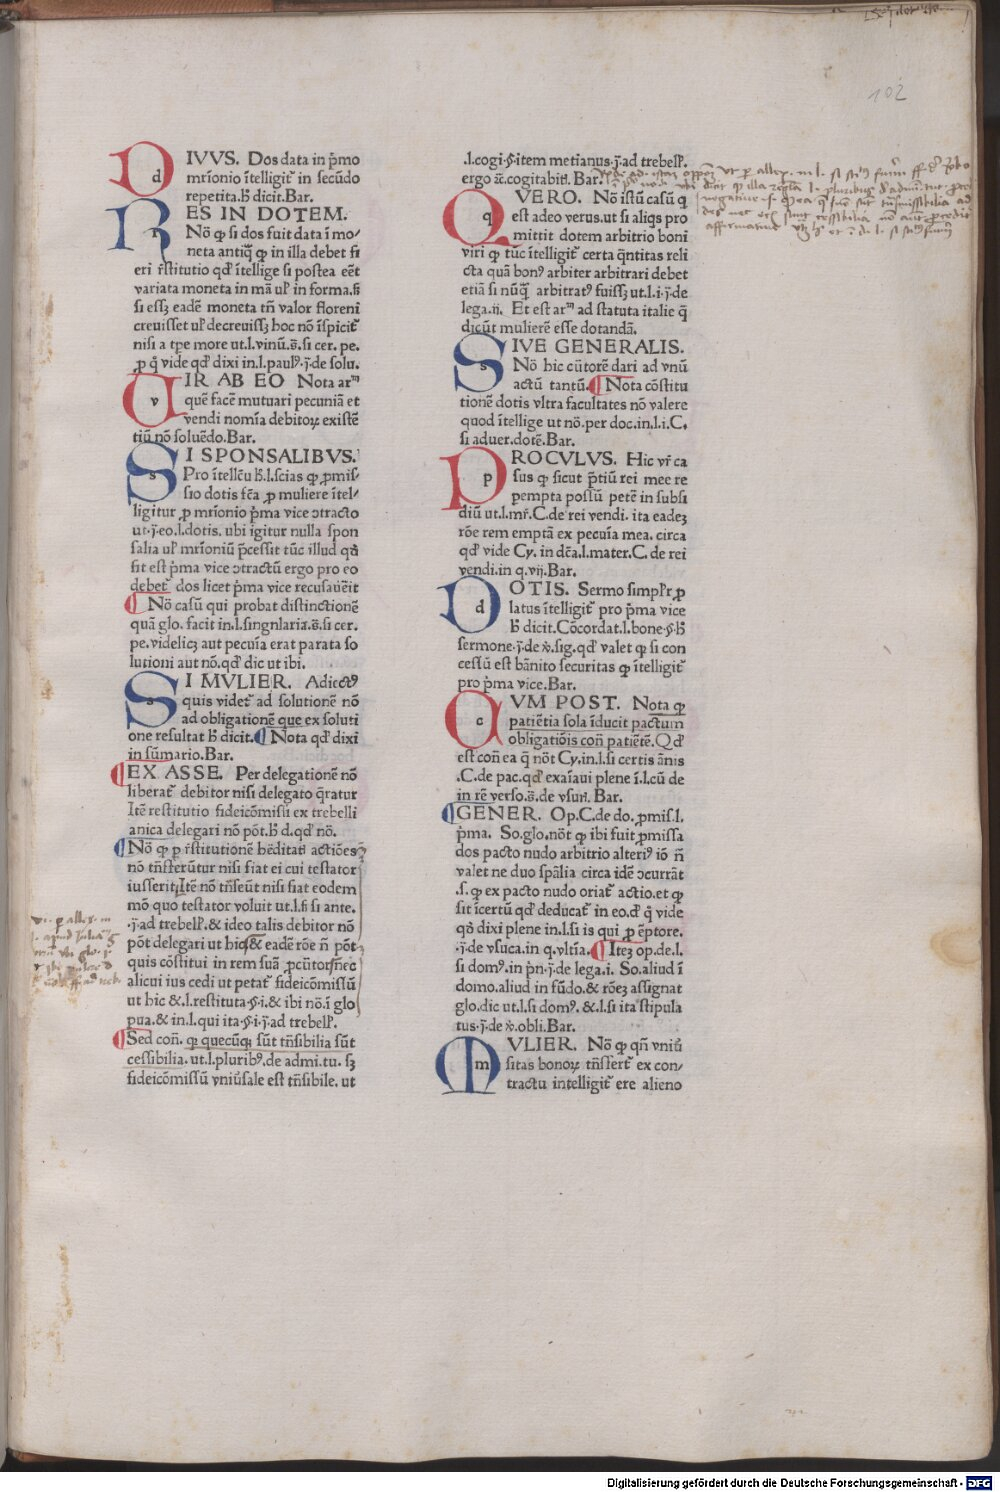 102
DIVVS. Dos data in p̄mo
mr̄ionio ītelligit᷑ in secūdo
repetita.h̄ dicit.Bar.
RES IN DOTEM.
Nō ꝙ si dos fuit data ī mo-
neta antiq̄ ꝙ in illa debet fi
eri r̄stitutio qd̓ ītellige si postea eēt
variata moneta in mā ul̓ in forma.ſꝫ
si eſſꝫ eadē moneta tn̄ valor floreni
creuisset ul̓ decreuiſſꝫ hoc nō īspicit᷑
nisi a tꝑe more ut.l.vinū.s̄.si cer. pe.
ꝓ q̓ vide qd̓ dixi in.l.paulꝰ.j̄.de solu.
VIR AB EO Nota arᵐ
quē facē mutuari pecuniā et
vendi nomīa debitoꝝ existē
tiū nō soluēdo.Bar.
SI SPONSALIBVS.
Pro ītellc̄u h̄.l.scias ꝙ ꝓmis-
sio dotis fc̄a ꝓ muliere ītel-
ligitur ꝓ mr̄ionio p̄ma vice ↄtracto
ut.j̄.eo.l.dotis. ubi igitur nulla spon
salia ul̓ mr̄ioniū p̄cessit tūc illud qd̓
sit est p̄ma vice ↄtractū ergo pro eo
debet᷑ dos licet p̄ma vice recusauēit
¶ Nō casū qui probat distinctionē
quā glo. facit in.l.singnlaria.s̄.si cer.
pe.videlicꝫ aut pecuīa erat parata so
lutioni aut nō.qd̓ dic ut ibi.
SI MVLIER. Adiectꝰ
quis videt᷑ ad solutionē nō
ad obligationē que ex soluti
one resultat h̄ dicit.¶ Nota qd̓ dixi
in sūmario.Bar.
¶EX ASSE. Per delegationē nō
liberat᷑ debitor nisi delegato q̄ratur
Itē restitutio fideicōmissi ex trebelli
anica delegari nō pōt.h̄ d.qd̓ nō.
¶Nō ꝙ ꝑ r̄stitutionē hēditatꝭ actiōes
nō tn̄sferūtur nisi fiat ei cui testator
iusserit.Itē nō tn̄seūt nisi fiat eodem
mō quo testator voluit ut.l.ſꝫ si ante.
.j̄.ad trebell̓. & ideo talis debitor nō
pōt delegari ut hic.& eadē rōe n̄ pōt
quis cōstitui in rem suā ꝓcūtor.nec
alicui ius cedi ut petat᷑ fideicōmissū
ut hic &.l.restituta.§.i.& ibi nō.ī glo
pua.& in.l.qui ita.§.i.j̄.ad trebell̓.
¶Sed con̄. ꝙ quecūqꝫ sūt tn̄sibilia sūt
cessibilia.ut.l.pluribꝰ.de admi.tu. sꝫ
fideicōmissū vniūsale est tn̄sibile. ut
.l.cogi.§.item metianus.j̄.ad trebell̓.
ergo ac̄.cogitabitꝭ. Bar.
QVERO. Nō istū casū q̓
est adeo verus.ut si aliq̓s pro
mittit dotem arbitrio boni
viri ꝙ tūc ītelligit᷑ certa q̄ntitas reli
cta quā bonꝰ arbiter arbitrari debet
etiā si nūq̄ arbitratꝰ fuiſſꝫ ut.l.i.j̄.de
lega.ij. Et est arᵐ ad statuta italie q̄
dicūt mulierē esse dotandā.
SIVE GENERALIS.
Nō hic cūtorē dari ad vnū
actū tantū.¶ Nota cōstitu
tionē dotis vltra facultates nō valere
quod ītellige ut nō.per doc.in.l.i.C.
si aduer.dotē.Bar.
PROCVLVS. Hic vr̄ ca
sus ꝙ sicut p̄tiū rei mee re
pempta possū petē in subsi
diū ut.l.mr̄.C.de rei vendi. ita eadeꝫ
rōe rem emptā ex pecuīa mea. circa
qd̓ vide Cy. in dc̄a.l.mater.C. de rei
vendi.in q.vij.Bar.
DOTIS. Sermo simpl̓r ꝓ
latus ītelligit᷑ pro p̄ma vice
h̄ dicit.Cōcordat.l.bone.§.h̄
sermone.j̄.de ꝟ.sig.qd̓ valet ꝙ si con
cessū est bānito securitas ꝙ ītelligit᷑
pro p̄ma vice.Bar.
CVM POST. Nota ꝙ
patiētia sola īducit pactum
obligatiōis con̄ patiētē.Qd̓
est con̄ ea q̄ nōt Cy.in.l.si certis ānis
.C.de pac.qd̓ exaīaui plene ī.l.cū de
in rē verso.s̄.de vsurꝭ. Bar.
¶GENER. Op.C.de do.ꝓmis.l.
p̄ma. So.glo.nōt ꝙ ibi fuit ꝓmissa
dos pacto nudo arbitrio alteriꝰ iō n̄
valet ne duo spālia circa idē ↄcurrāt
.s.ꝙ ex pacto nudo oriat᷑ actio.et ꝙ
sit īcertū qd̓ deducat᷑ in eo.d̓ q̓ vide
qd̓ dixi plene in.l.si is qui ꝓ ēptore.
.j̄.de vsuca.in q.vltīa.¶ Iteꝫ op.de.l.
si domꝰ.in p̄n.j̄.de lega.i. So.aliud ī
domo.aliud in fūdo.& rōeꝫ assignat
glo.dic ut.l.si domꝰ. &.l.si ita stipula
tus.j̄.de ꝟ.obli.Bar.
MVLIER. Nō ꝙ qn̄ vniꝟ
sitas bonoꝝ tn̄sfert᷑ ex con-
tractu intelligit᷑ ere alieno
Digitalisierung gefördert durch die Deutsche Forschungsgemeinschaft - DFG